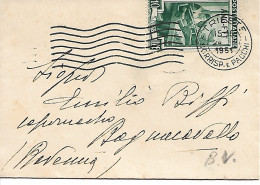 FIRENZE
15
1951
CORRISP. E PACCHI
Signor
Emilio Biffi
capomastro
Bagnacavallo
(Ravenna)
B. V.